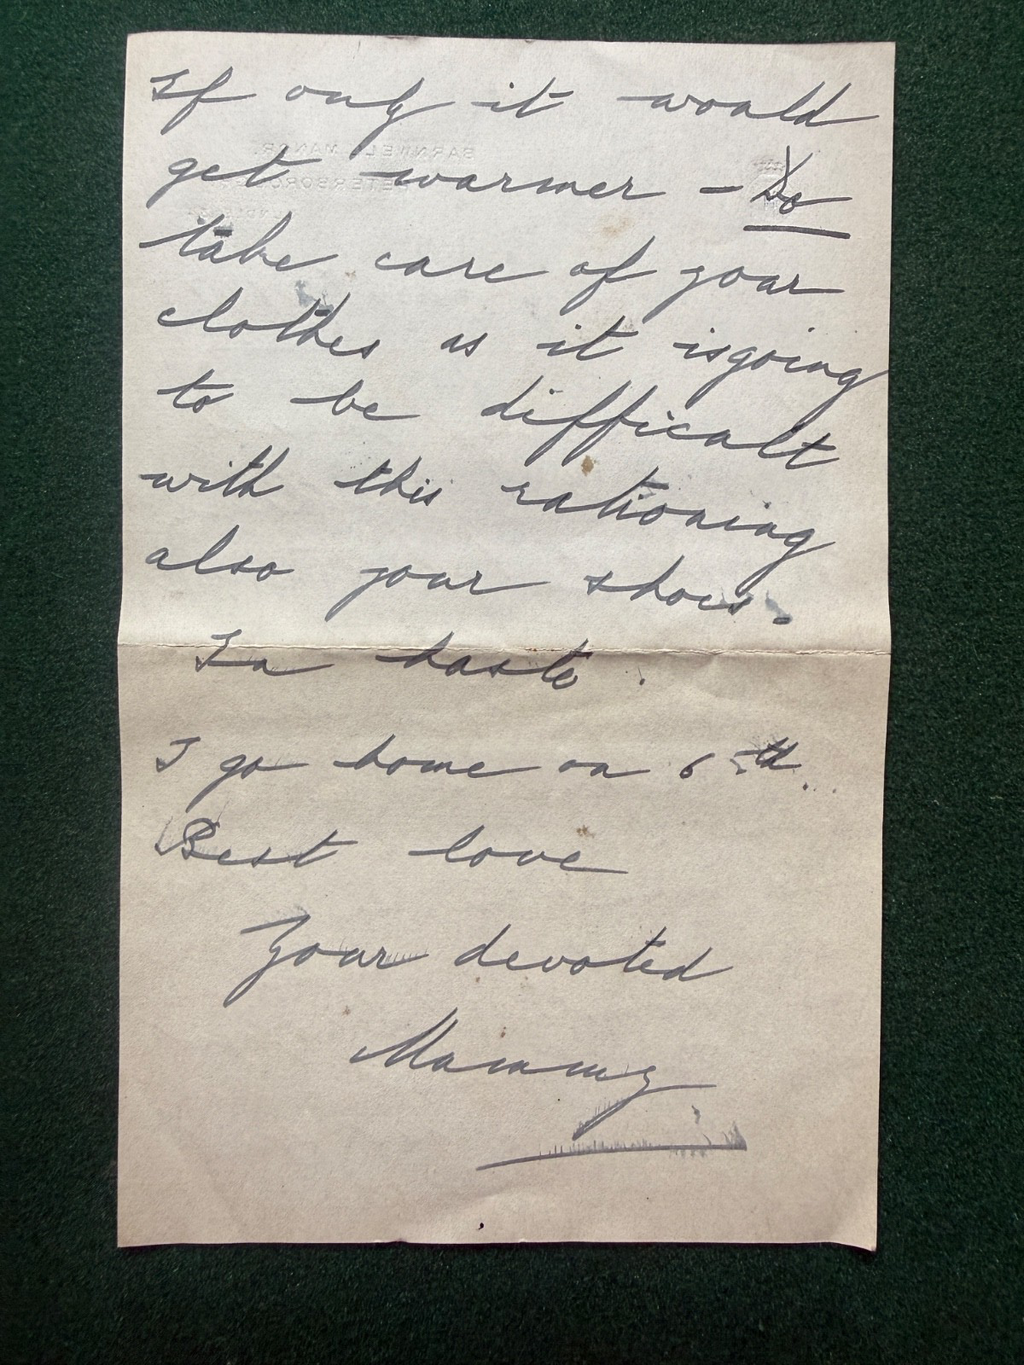 If only it would
get warmer - Do
take care of your
clothes as it is going
to be difficult
with this rationing
also your shoes.
In haste.
I go home on 6th.
Best love
Your devoted
Mammy
BARNWELL MANOR,
PETERBOROUGH